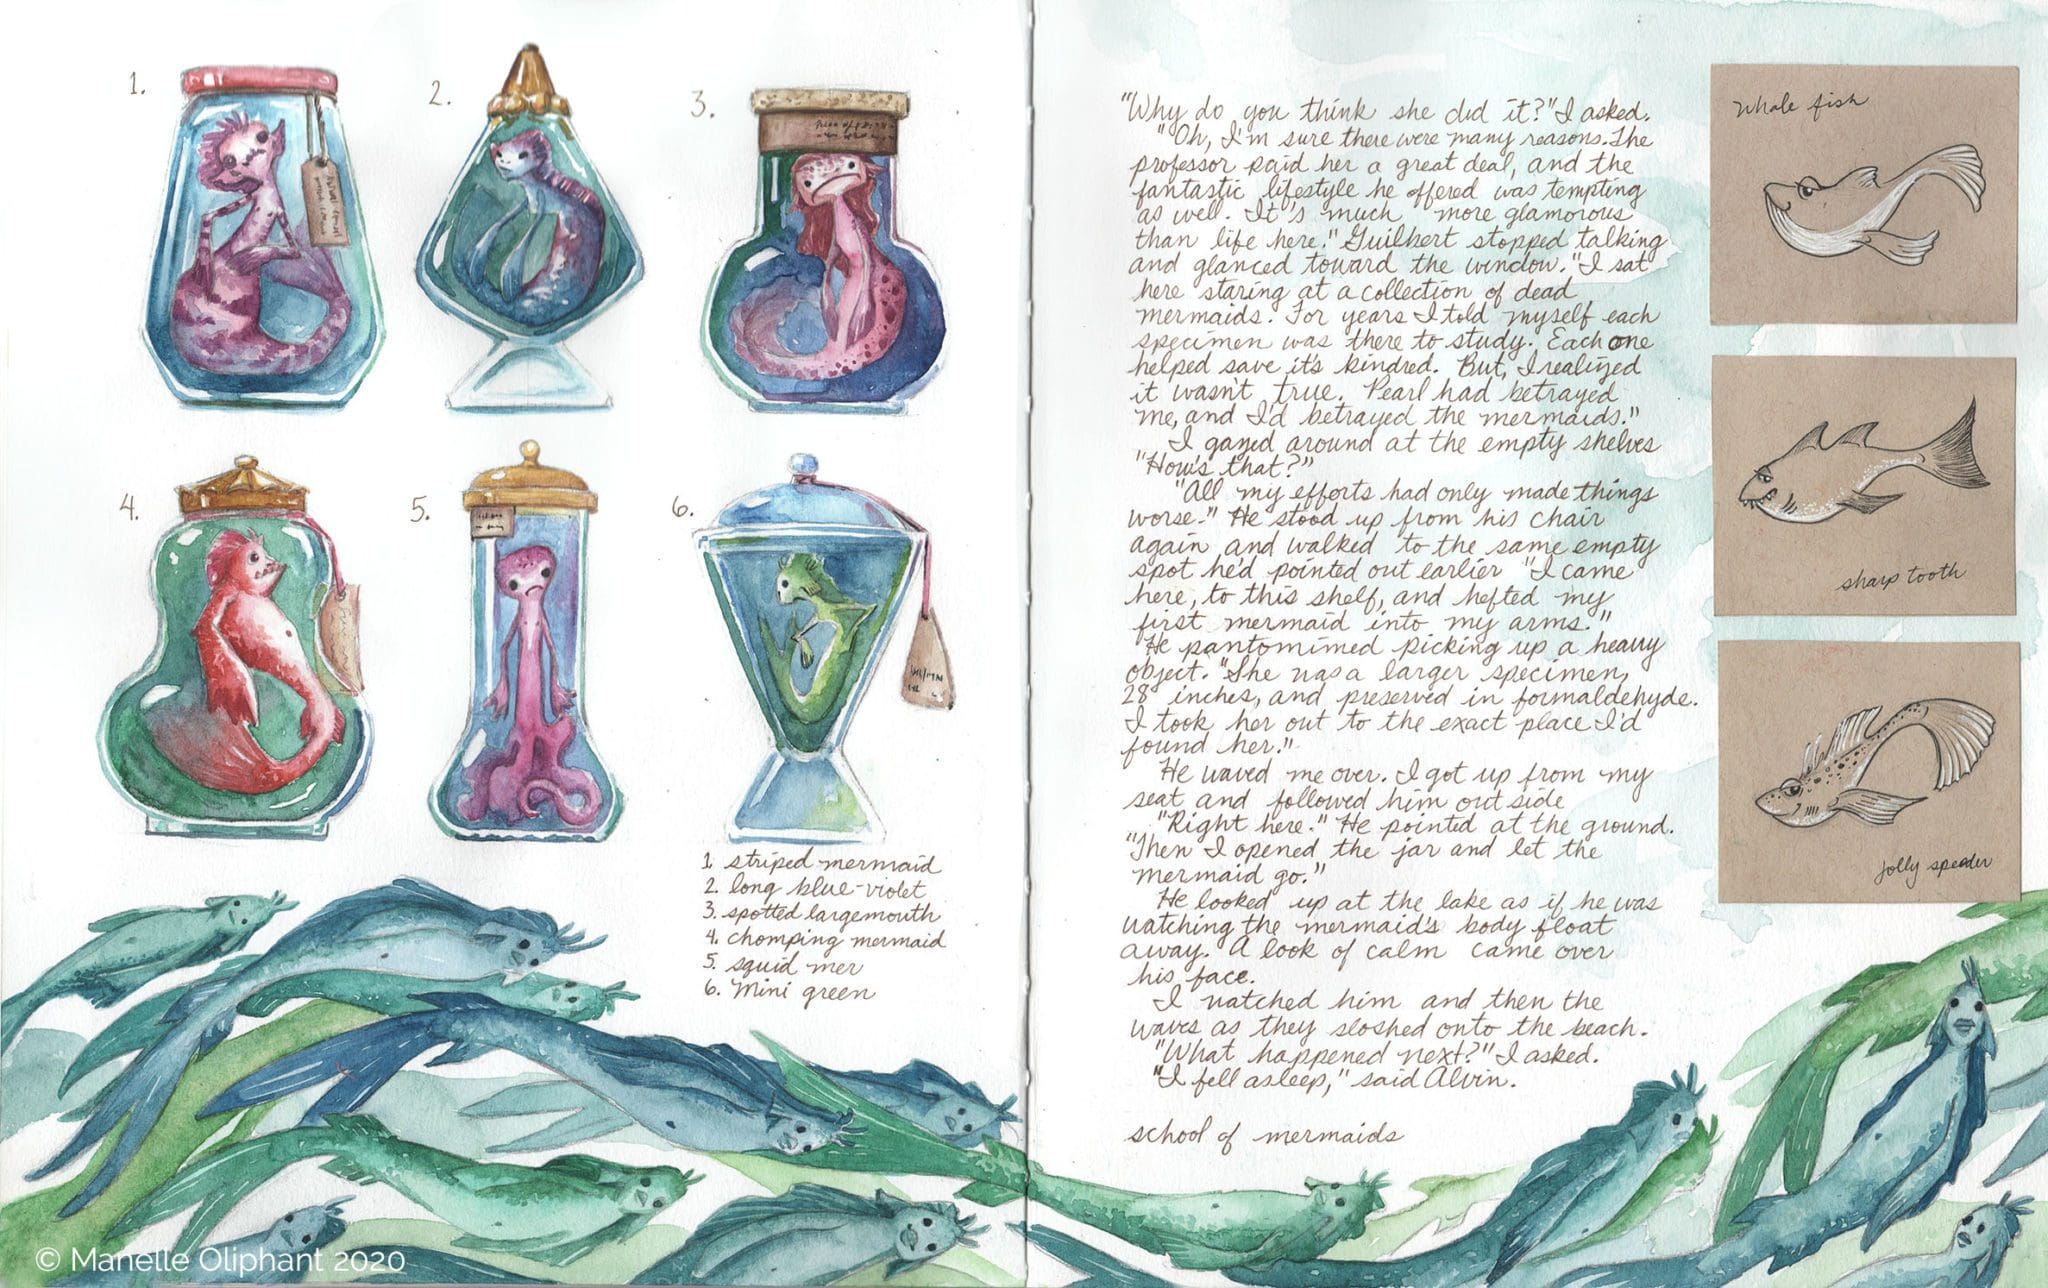 1.
2.
3.
4.
5.
6.
1. striped mermaid
2. long blue-violet
3. spotted largemouth
4. chomping mermaid
5. squid mer
6. mini green
© Manelle Oliphant 2020
"Why do you think she did it?" I asked.
"Oh, I'm sure there were many reasons. The
professor paid her a great deal, and the
fantastic lifestyle he offered was tempting
as well. It's much more glamorous
than life here." Guilbert stopped talking
and glanced toward the window. "I sat
here staring at a collection of dead
mermaids. For years I told myself each
specimen was there to study. Each one
helped save it's kindred. But, I realized
it wasn't true. Pearl had betrayed
me, and I'd betrayed the mermaids."
I gazed around at the empty shelves
"How's that?"
"All my efforts had only made things
worse." He stood up from his chair
again and walked to the same empty
spot he'd pointed out earlier "I came
here, to this shelf, and hefted my
first mermaid into my arms."
He pantomimed picking up a heavy
object. "She was a larger specimen,
28 inches, and preserved in formaldehyde.
I took her out to the exact place I'd
found her."
He waved me over. I got up from my
seat and followed him outside
"Right here." He pointed at the ground.
"Then I opened the jar and let the
mermaid go."
He looked up at the lake as if he was
watching the mermaid's body float
away. A look of calm came over
his face.
I watched him and then the
waves as they sloshed onto the beach.
"What happened next?" I asked.
"I fell asleep," said Alvin.
school of mermaids
Whale fish
sharp tooth
jolly speeder